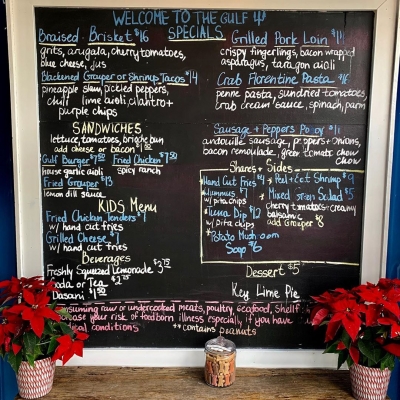 WELCOME TO THE GULF
SPECIALS
Braised Brisket $16
grits, arugala, cherry tomatoes,
blue cheese, jus
Blackened Grouper or Shrimp Tacos $14
pineapple slaw, pickled peppers,
chili lime aioli, cilantro +
purple chips
Grilled Pork Loin
crispy fingerlings, bacon wrapped
asparagus, tarragon aioli
Crab Florentine Pasta $16
penne pasta, sundried tomatoes,
crab cream sauce, spinach, parm
SANDWICHES
lettuce, tomatoes, brioche bun
add cheese or bacon
Gulf Burger Fried Chicken
house garlic aioli spicy ranch
Fried Grouper $13
lemon dill sauce
Sausage + Peppers Po boy $11
andouille sausage, peppers + onions,
bacon remoulade, green tomato chow
chow
KIDS Menu
Fried Chicken Tenders $7
w/ hand cut fries
Grilled Cheese
w/ hand cut fries
Beverages
Freshly Squeezed Lemonade
Soda or Tea
Dasani
Shares + Sides
Hand Cut Fries $4
Hummus $7
w/ pita chips
Tuna Dip
w/ pita chips
Potato Mushroom
Soup $6
Peel + Eat Shrimp
Mixed Green Salad
cherry tomatoes - creamy
balsamic
add Grouper
Dessert $5
Key Lime Pie
consuming raw or undercooked meats, poultry, seafood, shellf
your risk of foodborn illness especially if you have
conditions **contains peanuts